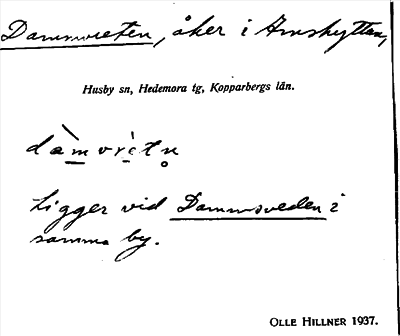 Dammvreten, åker i Amshyttan,
Husby sn, Hedemora tg, Kopparbergs län.
dàmvrètn̥
Ligger vid Dammsveden i
samma by.
OLLE HILLNER 1937.